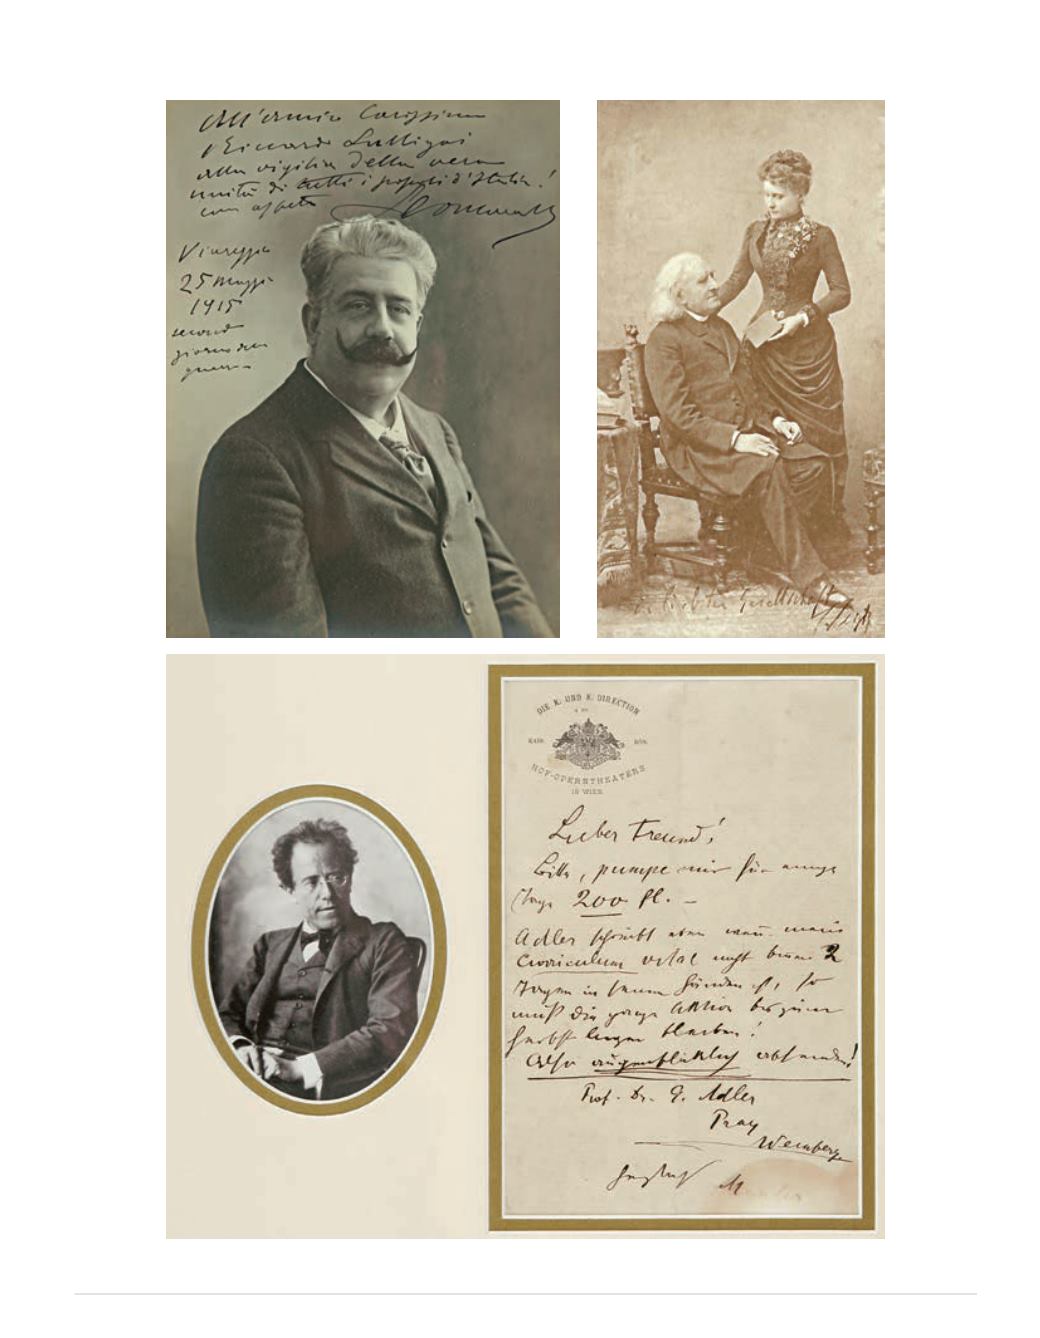 All'amico Carissimo
Riccardo
alla vigilia della vera
unità di tutti i popoli d'Italia!
con affetto
Viareggio
25 Maggio
1915
secondo
giorno della
guerra
Gesellschaft
DIE K. UND K. DIRECTION
HOF-OPERNTHEATERS
IN WIEN
Lieber Freund!
Bitte, pumpe mir für einige
Tage 200 fl. –
Adler schreibt eben wenn mein
Curriculum vitae nicht binnen 2
Tagen in seinen Händen ist, so
muß die ganze Aktion bis zum
Herbst liegen bleiben!
Also augenblicklich absenden!
Prof. Dr. G. Adler
Prag
Weinberge
M